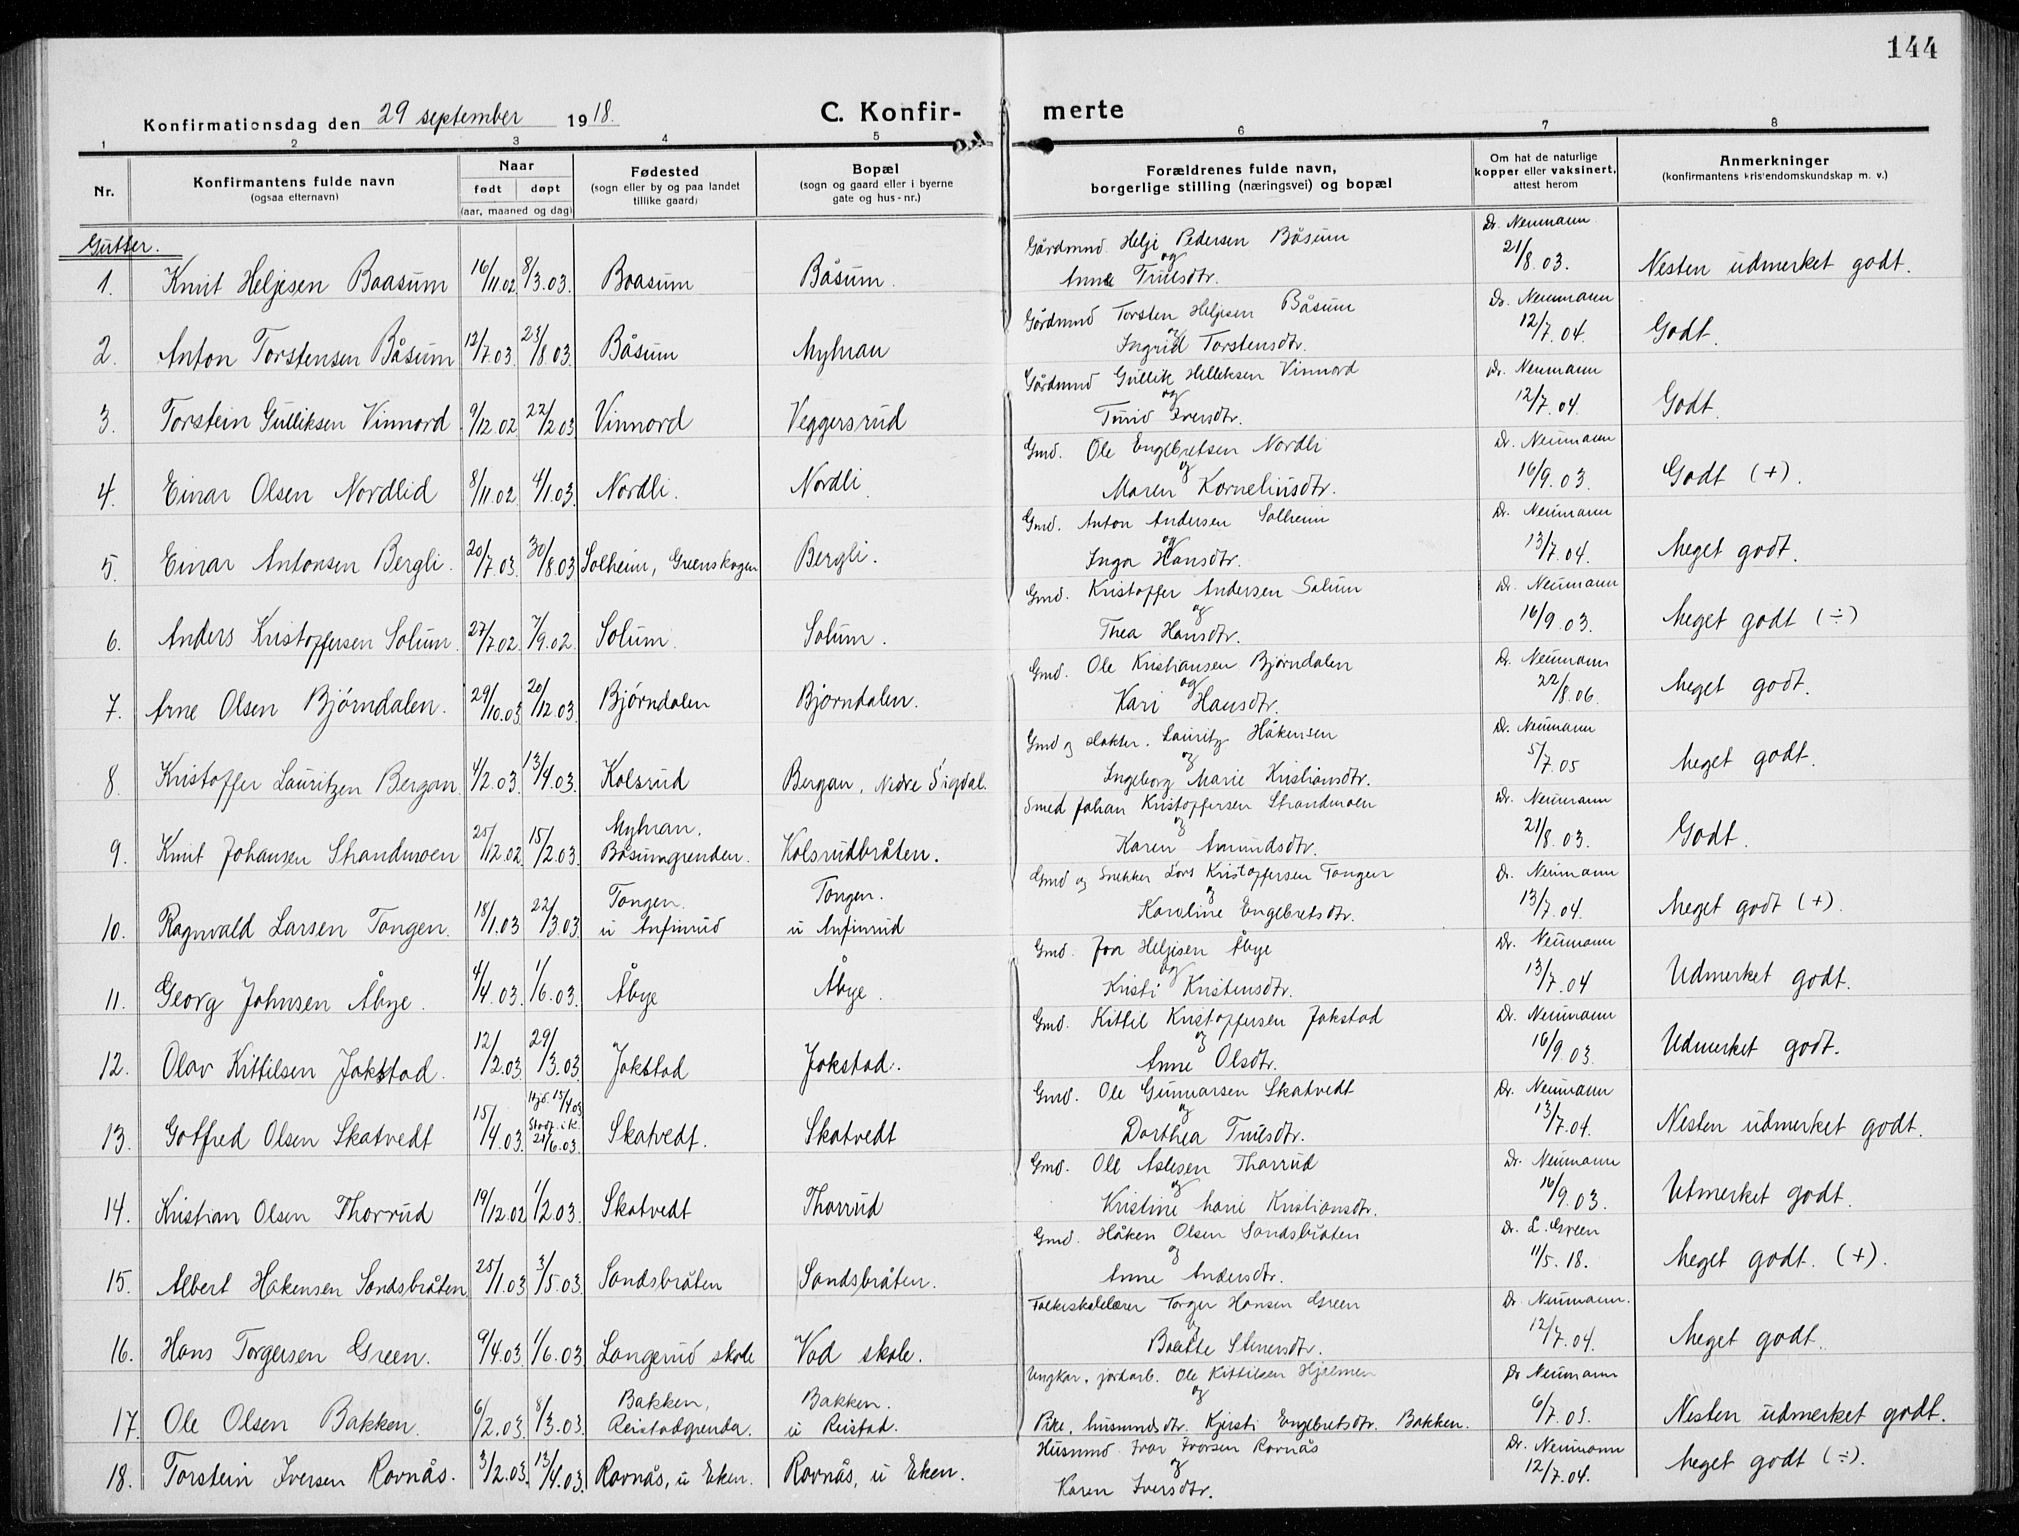 144
Konfirmationsdag den 29 september 1918.
C. Konfir- merte
1 2 3 4 5 6 7 8
Nr.
Konfirmantens fulde navn
(ogsaa efternavn)
Naar
født døpt
(aar, maaned og dag)
Fødested
(sogn eller by og paa landet
tillike gaard)
Bopæl
(sogn og gaard eller i byerne
gate og hus-nr.)
Forældrenes fulde navn,
borgerlige stilling (næringsvei) og bopæl
Om hat de naturlige
kopper eller vaksinert,
attest herom
Anmerkninger
(konfirmantens kristendomskundskap m. v.)
Gutter.
1. Knut Heljesen Baasum 16/11.02 8/3.03. Baasum Båsum. Gårdmnd. Helje Pedersen Båsum og Anne Trulsdtr. Dr. Neumann 21/8.03. Nesten udmerket godt.
2. Anton Torstensen Båsum 12/7.03. 23/8.03. Båsum Myhran Gårdmnd Torsten Heljesen Båsum og Ingrid Torstensdtr. Dr. Neumann 12/7.04. Godt.
3. Torstein Gulliksen Vinnord 9/12.02 22/2.03 Vinnord Veggersrud Gårdmnd Gullik Helleksen Vinnord og Turid Iversdtr. Dr. Neumann 12/7.04. Godt.
4. Einar Olsen Nordlid 8/11.02 4/1.03. Nordli. Nordli. Gmd. Ole Engebretsen Nordli og Maren Korneliusdtr. Dr. Neumann 16/9.03. Godt (+).
5. Einar Antonsen Bergli. 20/7.03. 30/8.03 Solheim, Greenskogen Bergli. Gmd. Anton Andersen Solheim og Inga Hansdtr. Dr. Neumann 13/7.04. Meget godt.
6. Anders Kristoffersen Solum. 27/7.02. 7/9.02. Solum. Solum. Gmd. Kristoffer Andersen Solum og Thea Hansdtr. Dr. Neumann 16/9.03. Meget godt (÷)
7. Arne Olsen Bjørndalen. 29/10.03 20/12.03. Bjørndalen Bjørndalen. Gmd. Ole Kristiansen Bjørndalen og Kari Hansdtr. Dr. Neumann 22/8.06. Meget godt.
8. Kristoffer Lauritzen Bergan. 4/2.03. 13/4.03. Kolsrud Bergan, Nedre Sigdal. Gmd og Lauritz Håkensen og Ingeborg Marie Kristiansdtr. Dr. Neumann 5/7.05 Meget godt.
9. Knut Johansen Strandmoen 25/12.02. 15/2.03. Myhran, Båsumgrenden. Kolsrudbråten. Smed Johan Kristoffersen Strandmoen og Karen Amundsdtr. Dr. Neumann 21/8.03. Godt.
10. Ragnvald Larsen Tangen. 18/1.03 22/3.03. Tangen. u Anfinrud Tangen. u Anfinrud Gmd og Snekker Lars Kristoffersen Tangen og Karoline Engebretsdtr. Dr. Neumann 13/7.04. Meget godt (+).
11. Georg Johnsen Åbye. 4/4.03. 1/6.03. Åbye Åbye. Gmd. Jon Heljesen Åbye og Kristi Kristensdtr. Dr. Neumann 13/7.04 Udmerket godt.
12. Olav Kittilsen Jokstad. 12/2.03. 29/3.03. Jokstad Jokstad. Gmd. Kittil Kristoffersen Jokstad og Anne Olsdtr. Dr. Neumann 16/9.03. Udmerket godt.
13. Gotfred Olsen Skatvedt 15/4.03. Hjd. 15/4.03 Stadf. i k. 21/6.03. Skatvedt. Skatvedt Gmd. Ole Gunnarsen Skatvedt og Dorthea Trulsdtr. Dr. Neumann 13/7.04. Nesten udmerket godt.
14. Kristian Olsen Thorrud 19/12.02 1/2.03. Skatvedt Thorrud Gmd. Ole Aslesen Thorrud og Kristine Marie Kristiansdtr. Dr. Neumann 16/9.03. Utmerket godt.
15. Albert Hakensen Sandsbråten 25/1.03 3/5.03. Sandsbråten Sandsbråten. Gmd. Håken Olsen Sandsbråten og Anne Andersdtr. Dr. L. Green 11/5.18. Meget godt. (+).
16. Hans Torgersen Green. 9/4.03. 1/6.03 Langerud skole Vad skole. Folkeskolelærer Torger Hansen Green og Beatte Stenersdtr. Dr. Neumann. 12/7.04. Meget godt.
17. Ole Olsen Bakken. 6/2.03. 8/3.03. Bakken, Reistadgrenda. Bakken. u Reistad. Ungkar, jordarb. Ole Kittilsen Hjelmen og Pike, husmndsdtr. Kjersti Engebretsdtr. Bakken. Dr Neumann 6/7.03. Nesten udmerket godt.
18. Torstein Iversen Rovnås. 3/2.03. 13/4.03. Rovnås, u Eken. Rovnås, u Eken. Husmnd Ivar Ivarsen Rovnås og Karen Iversdtr. Dr. Neumann 12/7.04. Meget godt (÷).